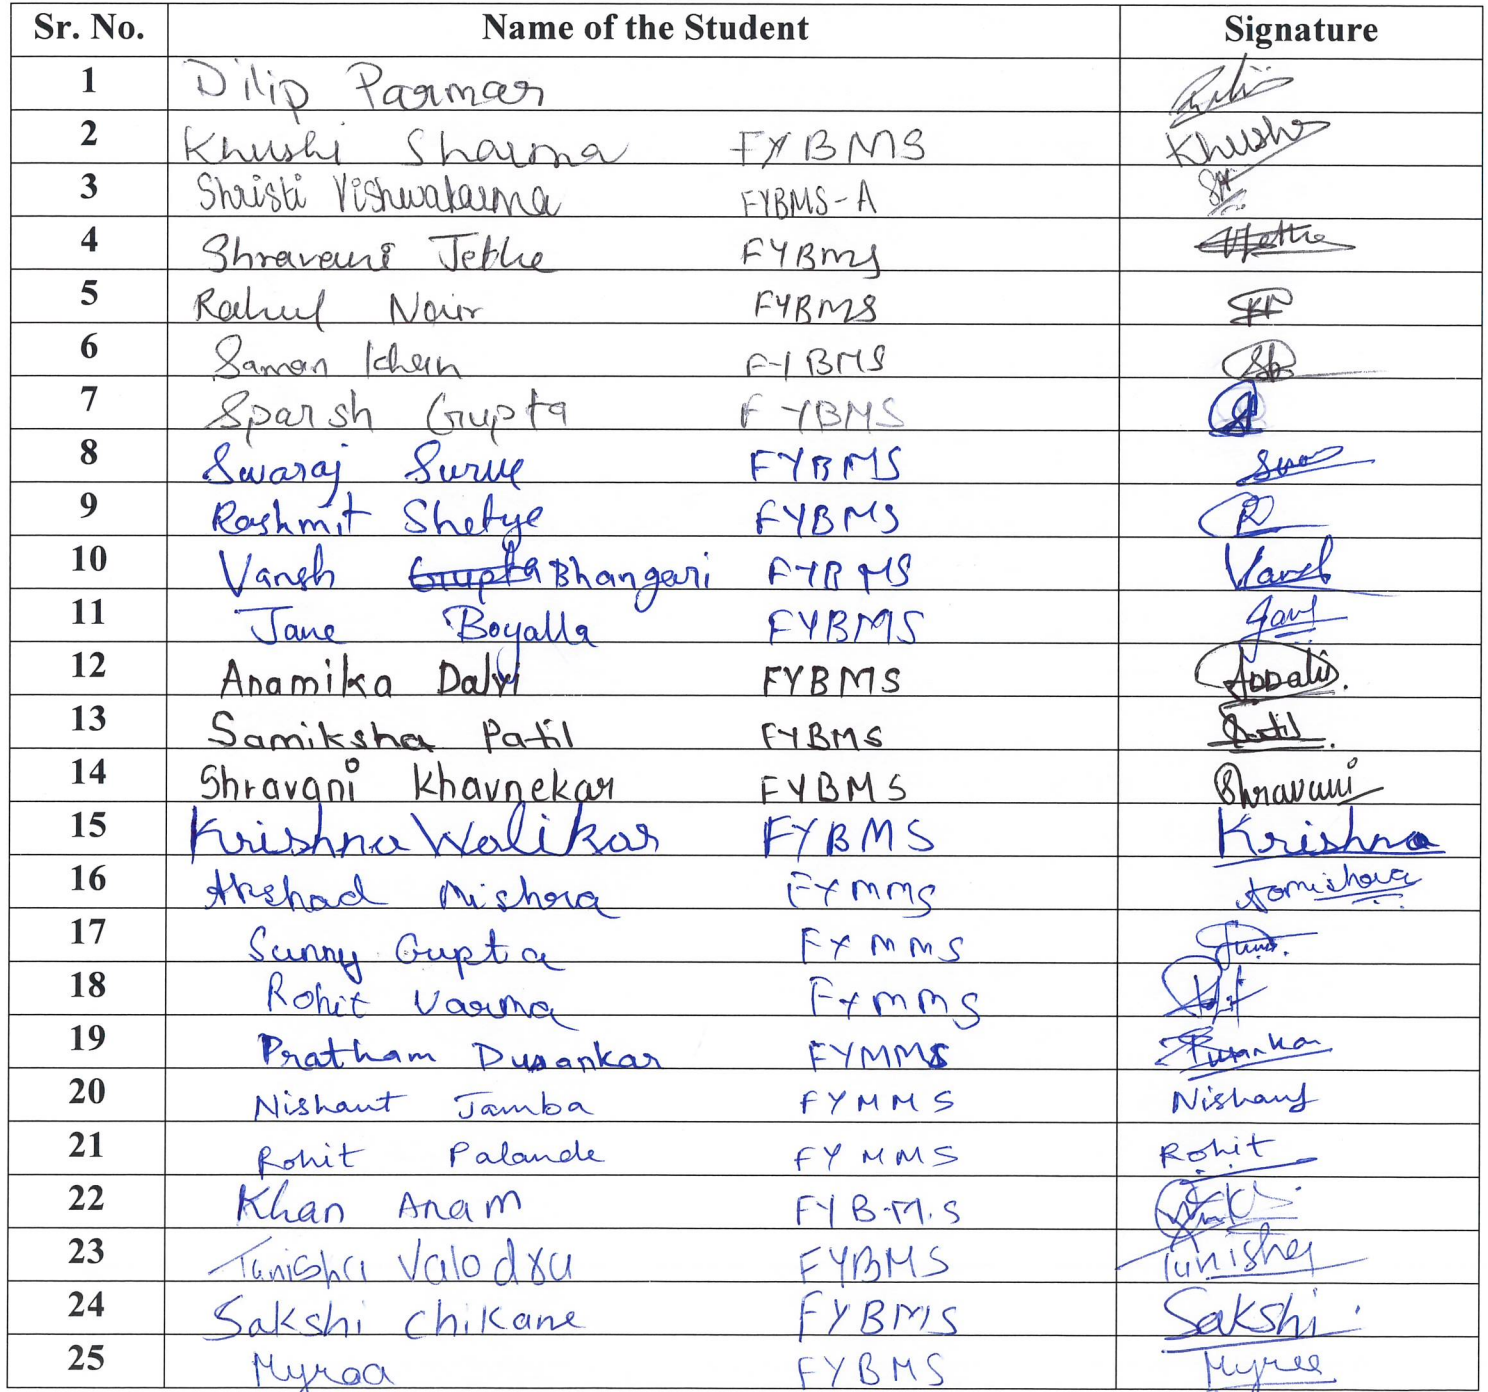 Sr. No. Name of the Student Signature
1 Dilip Parmar
2 Khushi Sharma FYBMS Khushi
3 Shristi Vishwakarma FYBMS-A
4 Shravani Jethe FYBMS
5 Rahul Nair FYBMS
6 Saman Khan FYBMS
7 Sparsh Gupta FYBMS
8 Swaraj Surve FYBMS
9 Rashmit Shetye FYBMS R
10 Vansh Gupta Bhangari FYBMS Vansh
11 Jane Boyalla FYBMS Jane
12 Anamika Dalvi FYBMS
13 Samiksha Patil FYBMS
14 Shravani Khavnekar FYBMS Shravani
15 Krishna Walikar FYBMS Krishna
16 Akshad Mishra FYMMS
17 Sunny Gupta FYMMS
18 Rohit Varma FYMMS
19 Pratham Dusankar FYMMS
20 Nishant Jamba FYMMS Nishant
21 Rohit Palande FYMMS Rohit
22 Khan Anam FYB.M.S
23 Tanisha Valodra FYBMS Tanisha
24 Sakshi Chikane FYBMS Sakshi
25 Myraa FYBMS Myraa